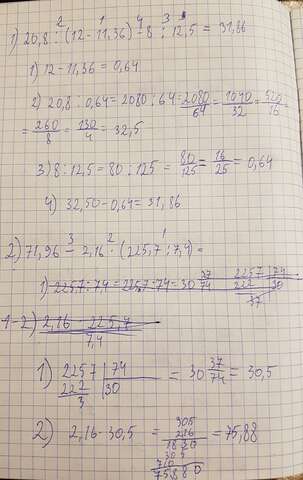 2 1 4 3
1) 20,8 : (12 - 11,36) - 8 : 12,5 = 31,86
1) 12 - 11,36 = 0,64
2) 20,8 : 0,64 = 2080 : 64 = 2080/64 = 1040/32 = 520/16
= 260/8 = 130/4 = 32,5
3) 8 : 12,5 = 80 : 125 = 80/125 = 16/25 = 0,64
4) 32,50 - 0,64 = 31,86
3 2 1
2) 71,96 - 2,16 · (225,7 : 7,4) =
1) 225,7 : 7,4 = 2257 : 74 = 30 37/74 2257 | 74
222 30
37
1-2) 2,16 · 225,7
7,4
1) 2257 | 74 = 30 37/74 = 30,5
222 | 30
3
2) 2,16 · 30,5 = 305 = 75,88
2,16
18 30
30 5
7588 0